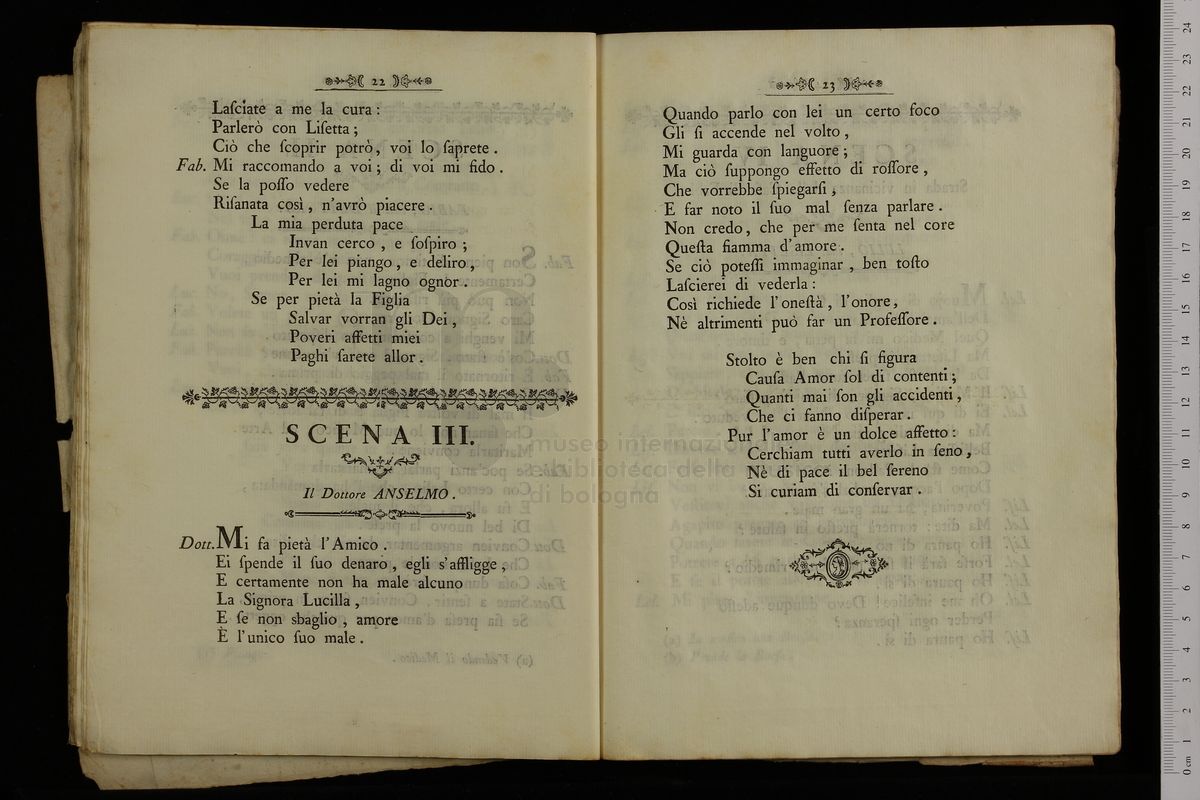 22
Laſciate a me la cura :
Parlerò con Liſetta ;
Ciò che ſcoprir potrò, voi lo ſaprete .
Fab. Mi raccomando a voi ; di voi mi fido .
Se la poſſo vedere
Riſanata così , n'avrò piacere .
La mia perduta pace
Invan cerco , e ſoſpiro ;
Per lei piango , e deliro ,
Per lei mi lagno ognòr .
Se per pietà la Figlia
Salvar vorran gli Dei ,
Poveri affetti miei
Paghi ſarete allor .
SCENA III.
Il Dottore ANSELMO .
Dott. Mi fa pietà l'Amico .
Ei ſpende il ſuo denaro , egli s'affligge ,
E certamente non ha male alcuno
La Signora Lucilla ,
E ſe non sbaglio , amore
È l'unico ſuo male .
23
Quando parlo con lei un certo foco
Gli ſi accende nel volto ,
Mi guarda con languore ;
Ma ciò ſuppongo effetto di roſſore ,
Che vorrebbe ſpiegarſi ,
E far noto il ſuo mal ſenza parlare .
Non credo , che per me ſenta nel core
Queſta fiamma d'amore .
Se ciò poteſſi immaginar , ben toſto
Laſcierei di vederla :
Così richiede l'oneſtà , l'onore ,
Nè altrimenti può far un Profeſſore .
Stolto è ben chi ſi figura
Cauſa Amor ſol di contenti ;
Quanti mai ſon gli accidenti ,
Che ci fanno diſperar .
Pur l'amor è un dolce affetto :
Cerchiam tutti averlo in ſeno ,
Nè di pace il bel ſereno
Si curiam di conſervar .
museo internazionale
e biblioteca della
di bologna
0 cm 1 2 3 4 5 6 7 8 9 10 11 12 13 14 15 16 17 18 19 20 21 22 23 24